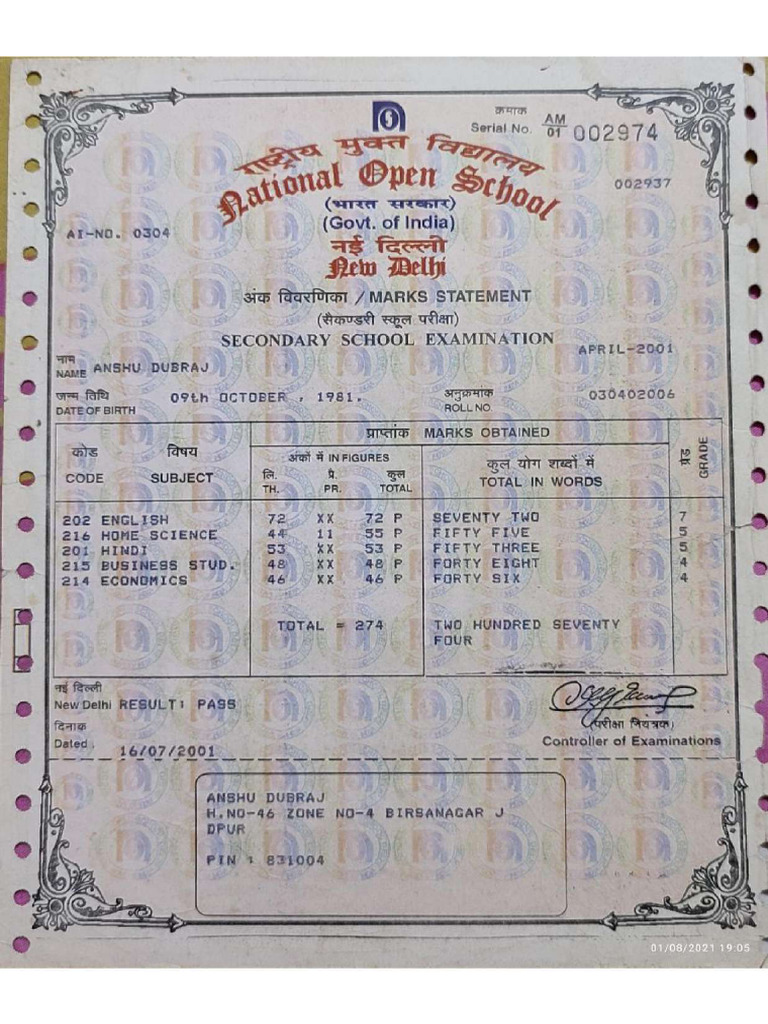 क्रमांक
Serial No. AM/01 002974
राष्ट्रीय मुक्त विद्यालय
National Open School
002937
(भारत सरकार)
(Govt. of India)
AI-NO. 0304
नई दिल्ली
New Delhi
अंक विवरणिका / MARKS STATEMENT
(सैकण्डरी स्कूल परीक्षा)
SECONDARY SCHOOL EXAMINATION
APRIL-2001
नाम
NAME ANSHU DUBRAJ
जन्म तिथि 09th OCTOBER , 1981. अनुक्रमांक 030402006
DATE OF BIRTH ROLL NO.
प्राप्तांक MARKS OBTAINED
कोड विषय अंकों में IN FIGURES कुल योग शब्दों में ग्रेड GRADE
CODE SUBJECT लि. TH. प्रै. PR. कुल TOTAL TOTAL IN WORDS
202 ENGLISH 72 XX 72 P SEVENTY TWO 7
216 HOME SCIENCE 44 11 55 P FIFTY FIVE 5
201 HINDI 53 XX 53 P FIFTY THREE 5
215 BUSINESS STUD. 48 XX 48 P FORTY EIGHT 4
214 ECONOMICS 46 XX 46 P FORTY SIX 4
TOTAL = 274 TWO HUNDRED SEVENTY
FOUR
नई दिल्ली
New Delhi RESULT: PASS
दिनांक (परीक्षा नियंत्रक)
Dated : 16/07/2001 Controller of Examinations
ANSHU DUBRAJ
H.NO-46 ZONE NO-4 BIRSANAGAR J
DPUR
PIN : 831004
01/08/2021 19:05